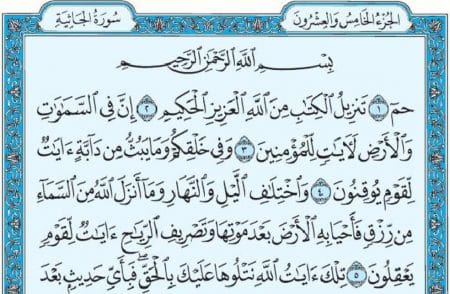 سُورَةُ الجَاثِيَةِ
الجُزْءُ الخَامِسُ وَالعِشْرُونَ
بِسْمِ اللَّهِ الرَّحْمَٰنِ الرَّحِيمِ
حمٓ ١ تَنزِيلُ الْكِتَابِ مِنَ اللَّهِ الْعَزِيزِ الْحَكِيمِ ٢ إِنَّ فِي السَّمَاوَاتِ
وَالْأَرْضِ لَآيَاتٍ لِّلْمُؤْمِنِينَ ٣ وَفِي خَلْقِكُمْ وَمَا يَبُثُّ مِن دَابَّةٍ ءَايَاتٌ
لِّقَوْمٍ يُوقِنُونَ ٤ وَاخْتِلَافِ اللَّيْلِ وَالنَّهَارِ وَمَا أَنزَلَ اللَّهُ مِنَ السَّمَاءِ
مِن رِّزْقٍ فَأَحْيَا بِهِ الْأَرْضَ بَعْدَ مَوْتِهَا وَتَصْرِيفِ الرِّيَاحِ ءَايَاتٌ لِّقَوْمٍ
يَعْقِلُونَ ٥ تِلْكَ ءَايَاتُ اللَّهِ نَتْلُوهَا عَلَيْكَ بِالْحَقِّ ۖ فَبِأَيِّ حَدِيثٍ بَعْدَ